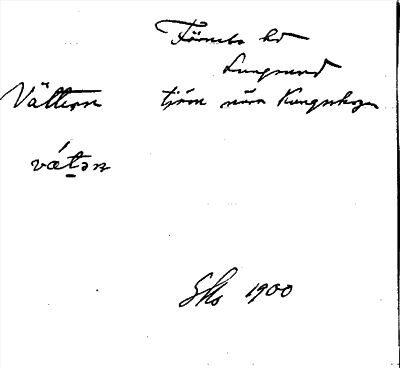 Färnebo hd
Lungsund
Vättern tjärn nära Kungsskogen
vǽtən
Eks 1900